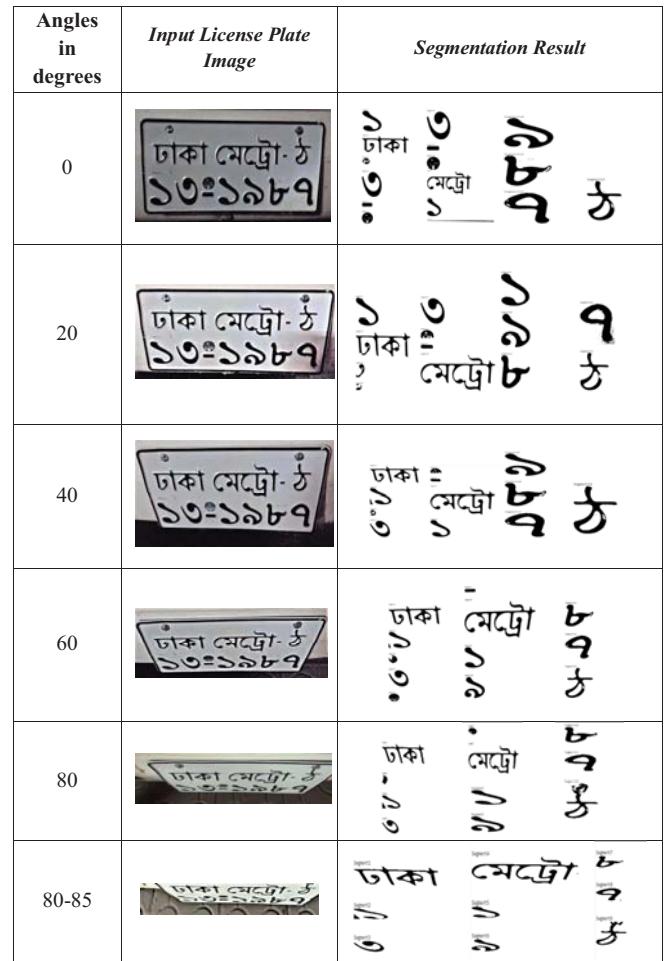 Angles in degrees
Input License Plate Image
Segmentation Result
0
ঢাকা মেট্রো- ঠ
১৩-১৯৮৭
১
ঢাকা
৩
৩
মেট্রো
১
৯
৮
৭
ঠ
20
ঢাকা মেট্রো- ঠ
১৩-১৯৮৭
১
ঢাকা
৩
মেট্রো
১
৯
৮
৭
ঠ
40
ঢাকা মেট্রো- ঠ
১৩-১৯৮৭
ঢাকা
১
৩
মেট্রো
১
৯
৮
৭
ঠ
60
ঢাকা মেট্রো- ঠ
১৩-১৯৮৭
ঢাকা
১
৩
-
মেট্রো
১
৯
৮
৭
ঠ
80
ঢাকা মেট্রো- ঠ
১৩-১৯৮৭
ঢাকা
১
৩
মেট্রো
১
৯
৮
৭
ঠ
80-85
ঢাকা মেট্রো- ঠ
১৩-১৯৮৭
ঢাকা
১
৩
মেট্রো
১
৯
৮
৭
ঠ